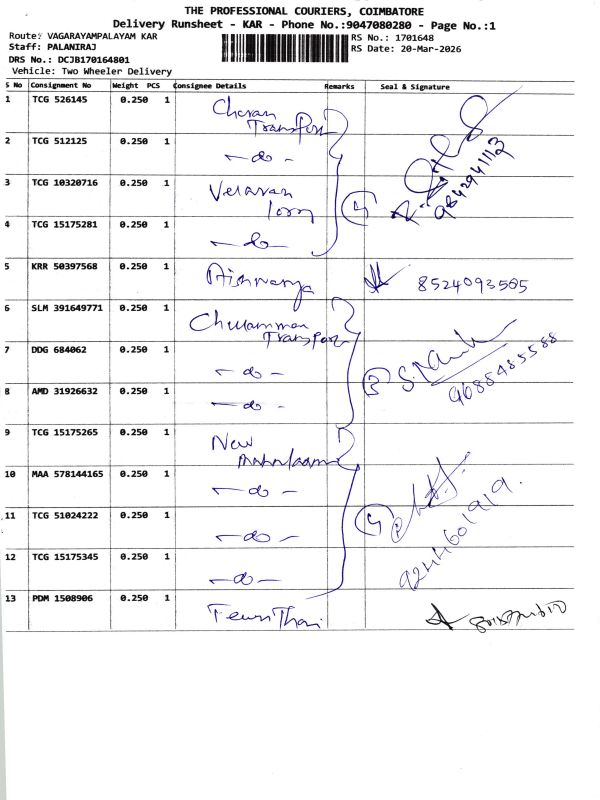 THE PROFESSIONAL COURIERS, COIMBATORE
Delivery Runsheet - KAR - Phone No.:9047080280 - Page No.:1
Route: VAGARAYAMPALAYAM KAR
Staff: PALANIRAJ
DRS No.: DCJB170164801
Vehicle: Two Wheeler Delivery
RS No.: 1701648
RS Date: 20-Mar-2026
S No Consignment No Weight PCS Consignee Details Remarks Seal & Signature
1 TCG 526145 0.250 1 Cheran Transport
2 TCG 512125 0.250 1 -do-
3 TCG 10320716 0.250 1 Velavan lorry 4 9842941113
4 TCG 15175281 0.250 1 -do-
5 KRR 50397568 0.250 1 Aishwarya 8524093505
6 SLM 391649771 0.250 1 Transport
7 DDG 684062 0.250 1 -do- 3 9688485588
8 AMD 31926632 0.250 1 -do-
9 TCG 15175265 0.250 1 New
10 MAA 578144165 0.250 1 -do-
11 TCG 51024222 0.250 1 -do- 4 9244601919.
12 TCG 15175345 0.250 1 -do-
13 PDM 1508906 0.250 1